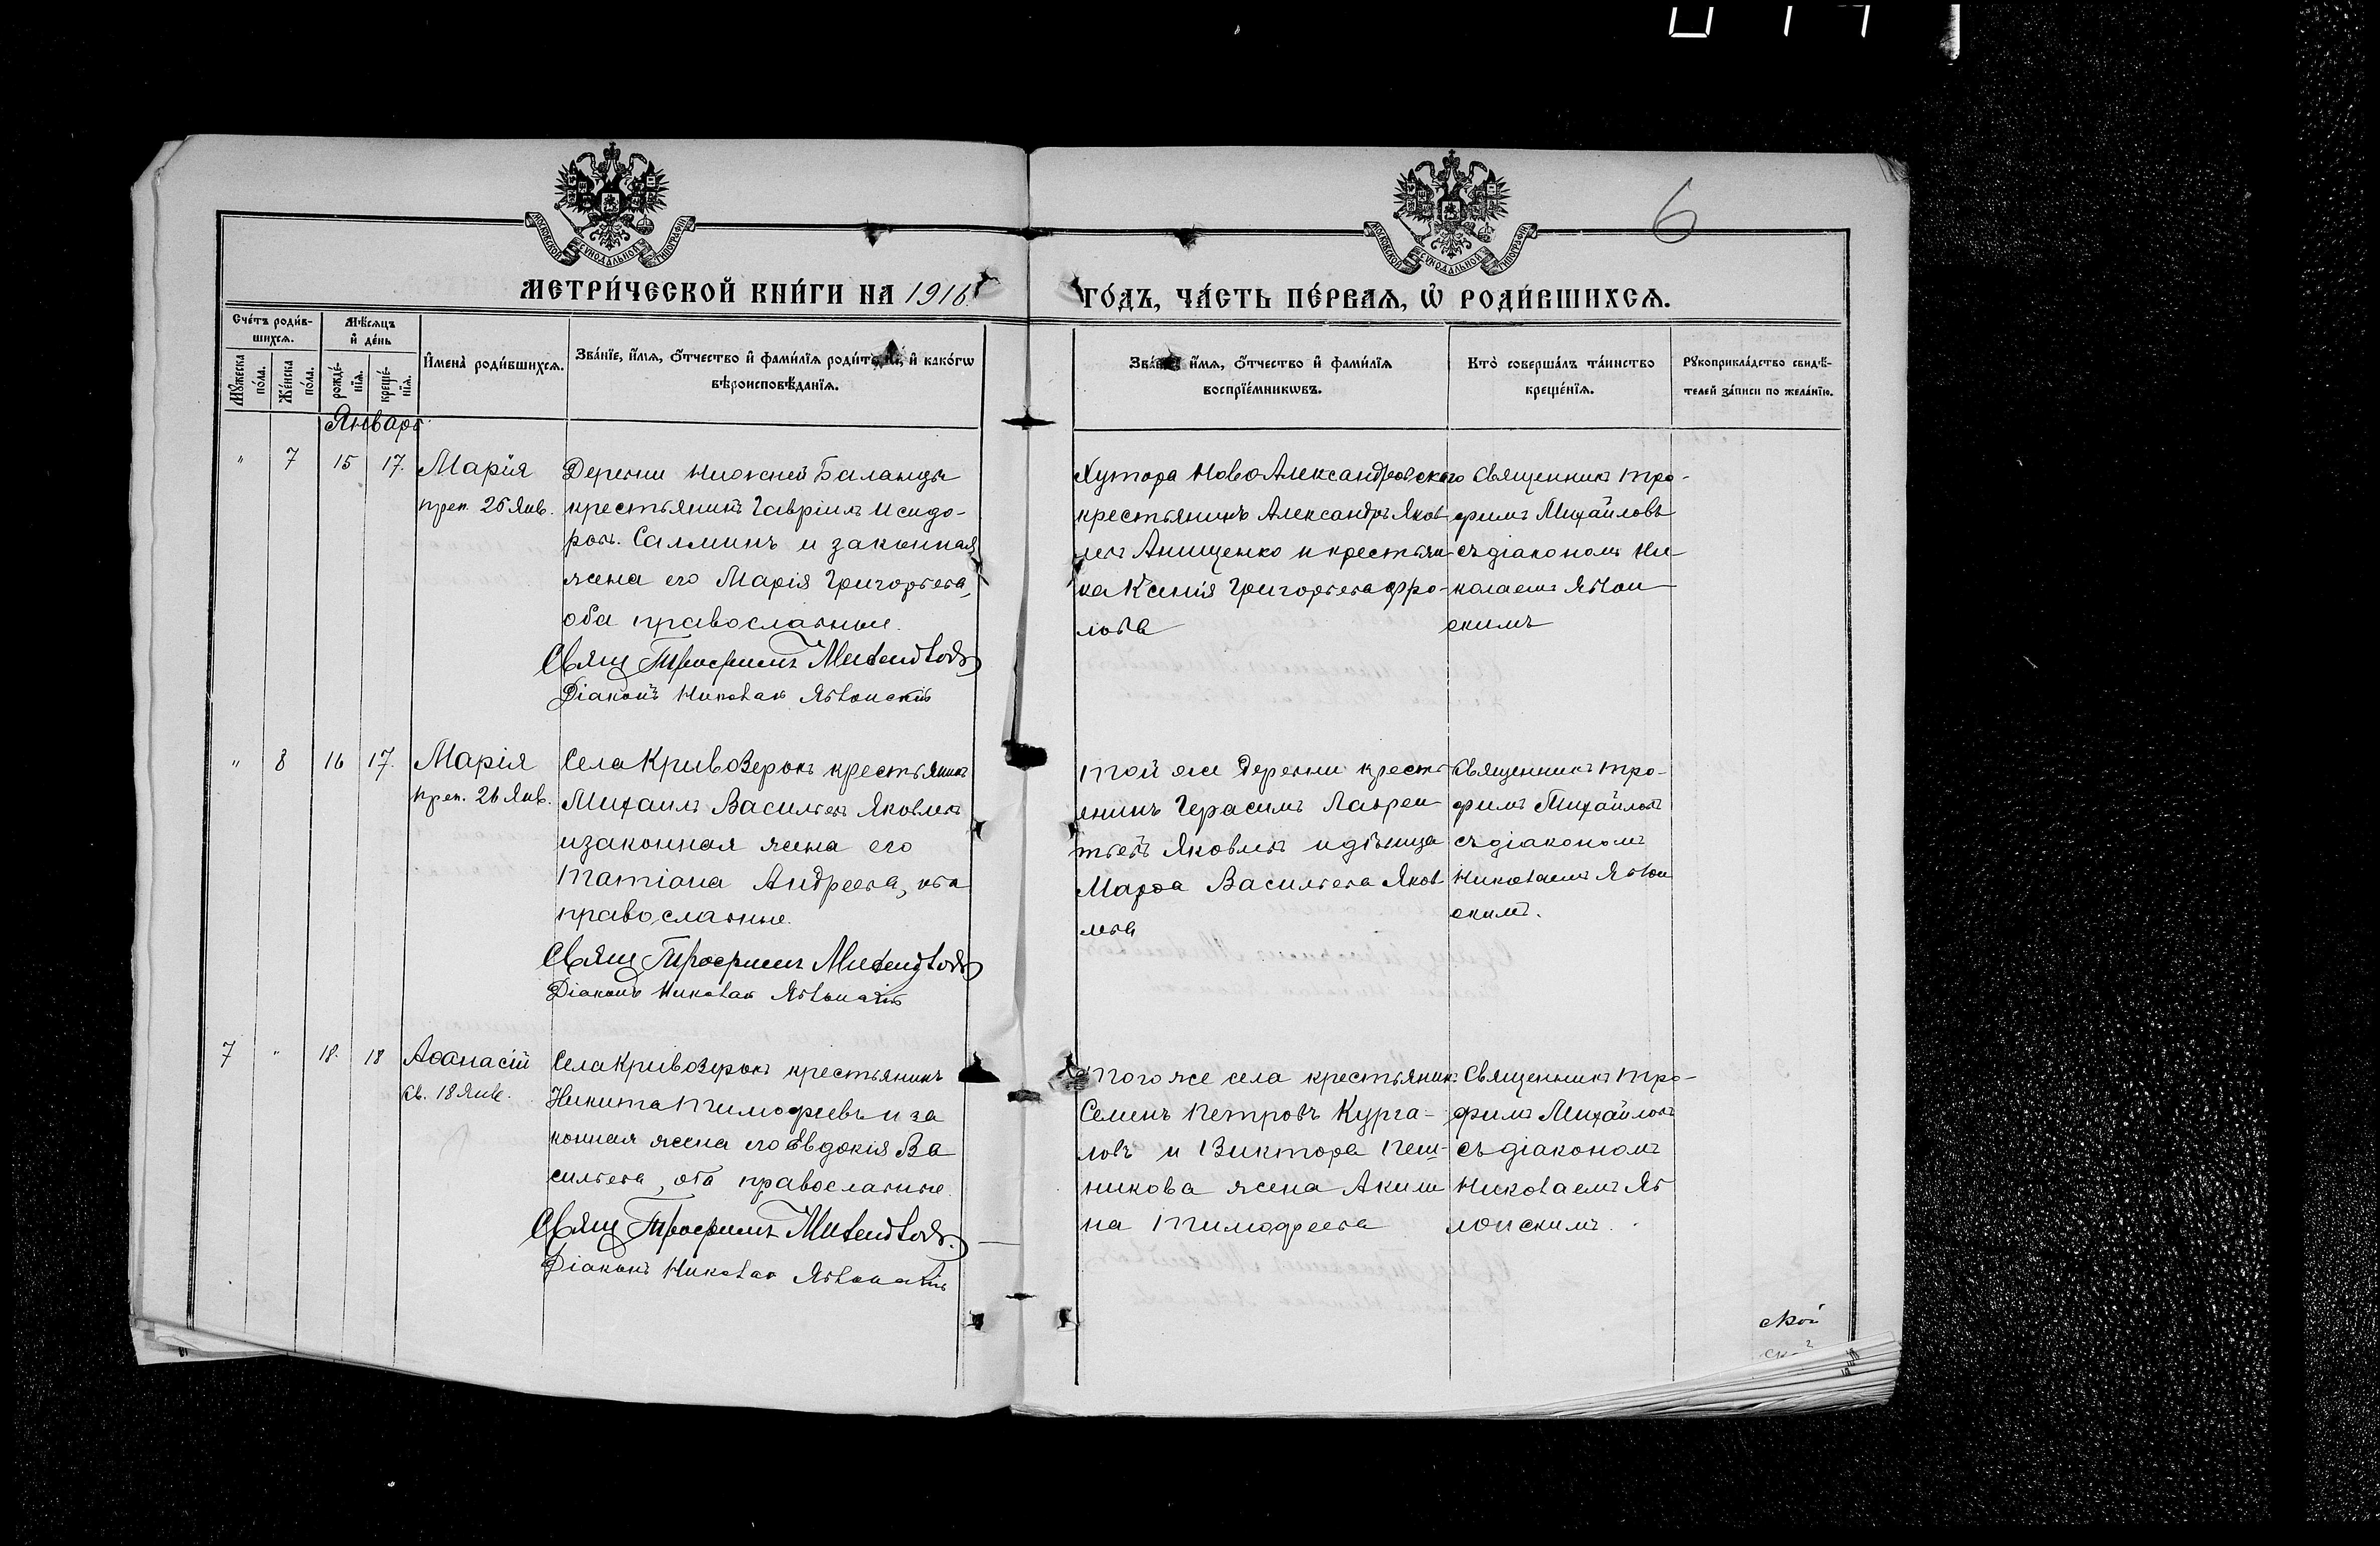 6
МОСКОВСКОЙ СѴНОДАЛЬНОЙ ТИПОГРАФІИ
МОСКОВСКОЙ СѴНОДАЛЬНОЙ ТИПОГРАФІИ
МЕТРИ́ЧЕСКОЙ КНИ́ГИ НА 1916
ГО́ДЪ, ЧА́СТЬ ПЕ́РВАѦ, Ѽ РОДИ́ВШИХСѦ.
Сче́тъ роди́в-
шихсѧ.
Мѣ́сѧцъ
и҆ де́нь
Мꙋ́жеска
по́ла.
Же́нска
по́ла.
рожде́-
нїѧ.
креще́-
нїѧ.
И҆мена̀ роди́вшихсѧ.
Зва́нїе, и҆́мѧ, ѻ҆́тчество и҆ фами́лїѧ и҆ како́гѡ
вѣроисповѣ́данїѧ.
и҆́мѧ, ѻ҆́тчество и҆ фами́лїѧ
воспрїе́мникѡвъ.
Кто̀ соверша́лъ та́инство
креще́нїѧ.
Рꙋкоприкла́дство свидѣ́-
телей за́писи по жела́нїю.
Январь
" 7 15 17. Марія
преп. 26 Янв.
Деревни Нижней Баланды
крестьянинъ Гавріилъ Исидо-
ровъ Салминъ и законная
жена его Марія Григорьева,
оба православные.
Свящ Трофимъ Михайловъ
Діаконъ Николай Явлонскій
Хутора НовоАлександровского
крестьянинъ Александръ Яков
левъ Анищенко и крестьян-
ка Ксенія Григорьева Фро-
лова
Священникъ Тро-
фимъ Михайловъ
съ діакономъ Ни-
колаемъ Явлон
скимъ
" 8 16 17. Марія
преп. 26 Янв.
Села Кривозерокъ крестьянинъ
Михаилъ Васильевъ Яковлевъ
и законная жена его
Татіана Андреева, оба
православные.
Свящ Трофимъ Михайловъ
Діаконъ Николай Явлонскій
Той же деревни кресть
янинъ Герасимъ Лаврен
тьевъ Яковлевъ и дѣвица
Марѳа Васильева Яков
лева
Священникъ Тро-
фимъ Михайловъ
съ діакономъ
Николаемъ Явлон
скимъ.
7 " 18. 18 Аѳанасій
св. 18 Янв.
Села Кривозерокъ крестьянинъ
Никита Тимофеевъ и за
конная жена его Евдокія Ва
сильева, оба православные.
Свящ Трофимъ Михайловъ.
Діаконъ Николай Явлонскій
Того же села крестьянинъ
Семенъ Петровъ Курга-
ловъ и Виктора Печ-
никова жена Акили
на Тимофеева
Священникъ Тро-
фимъ Михайловъ
съ діакономъ
Николаемъ Яв
лонскимъ.
ской